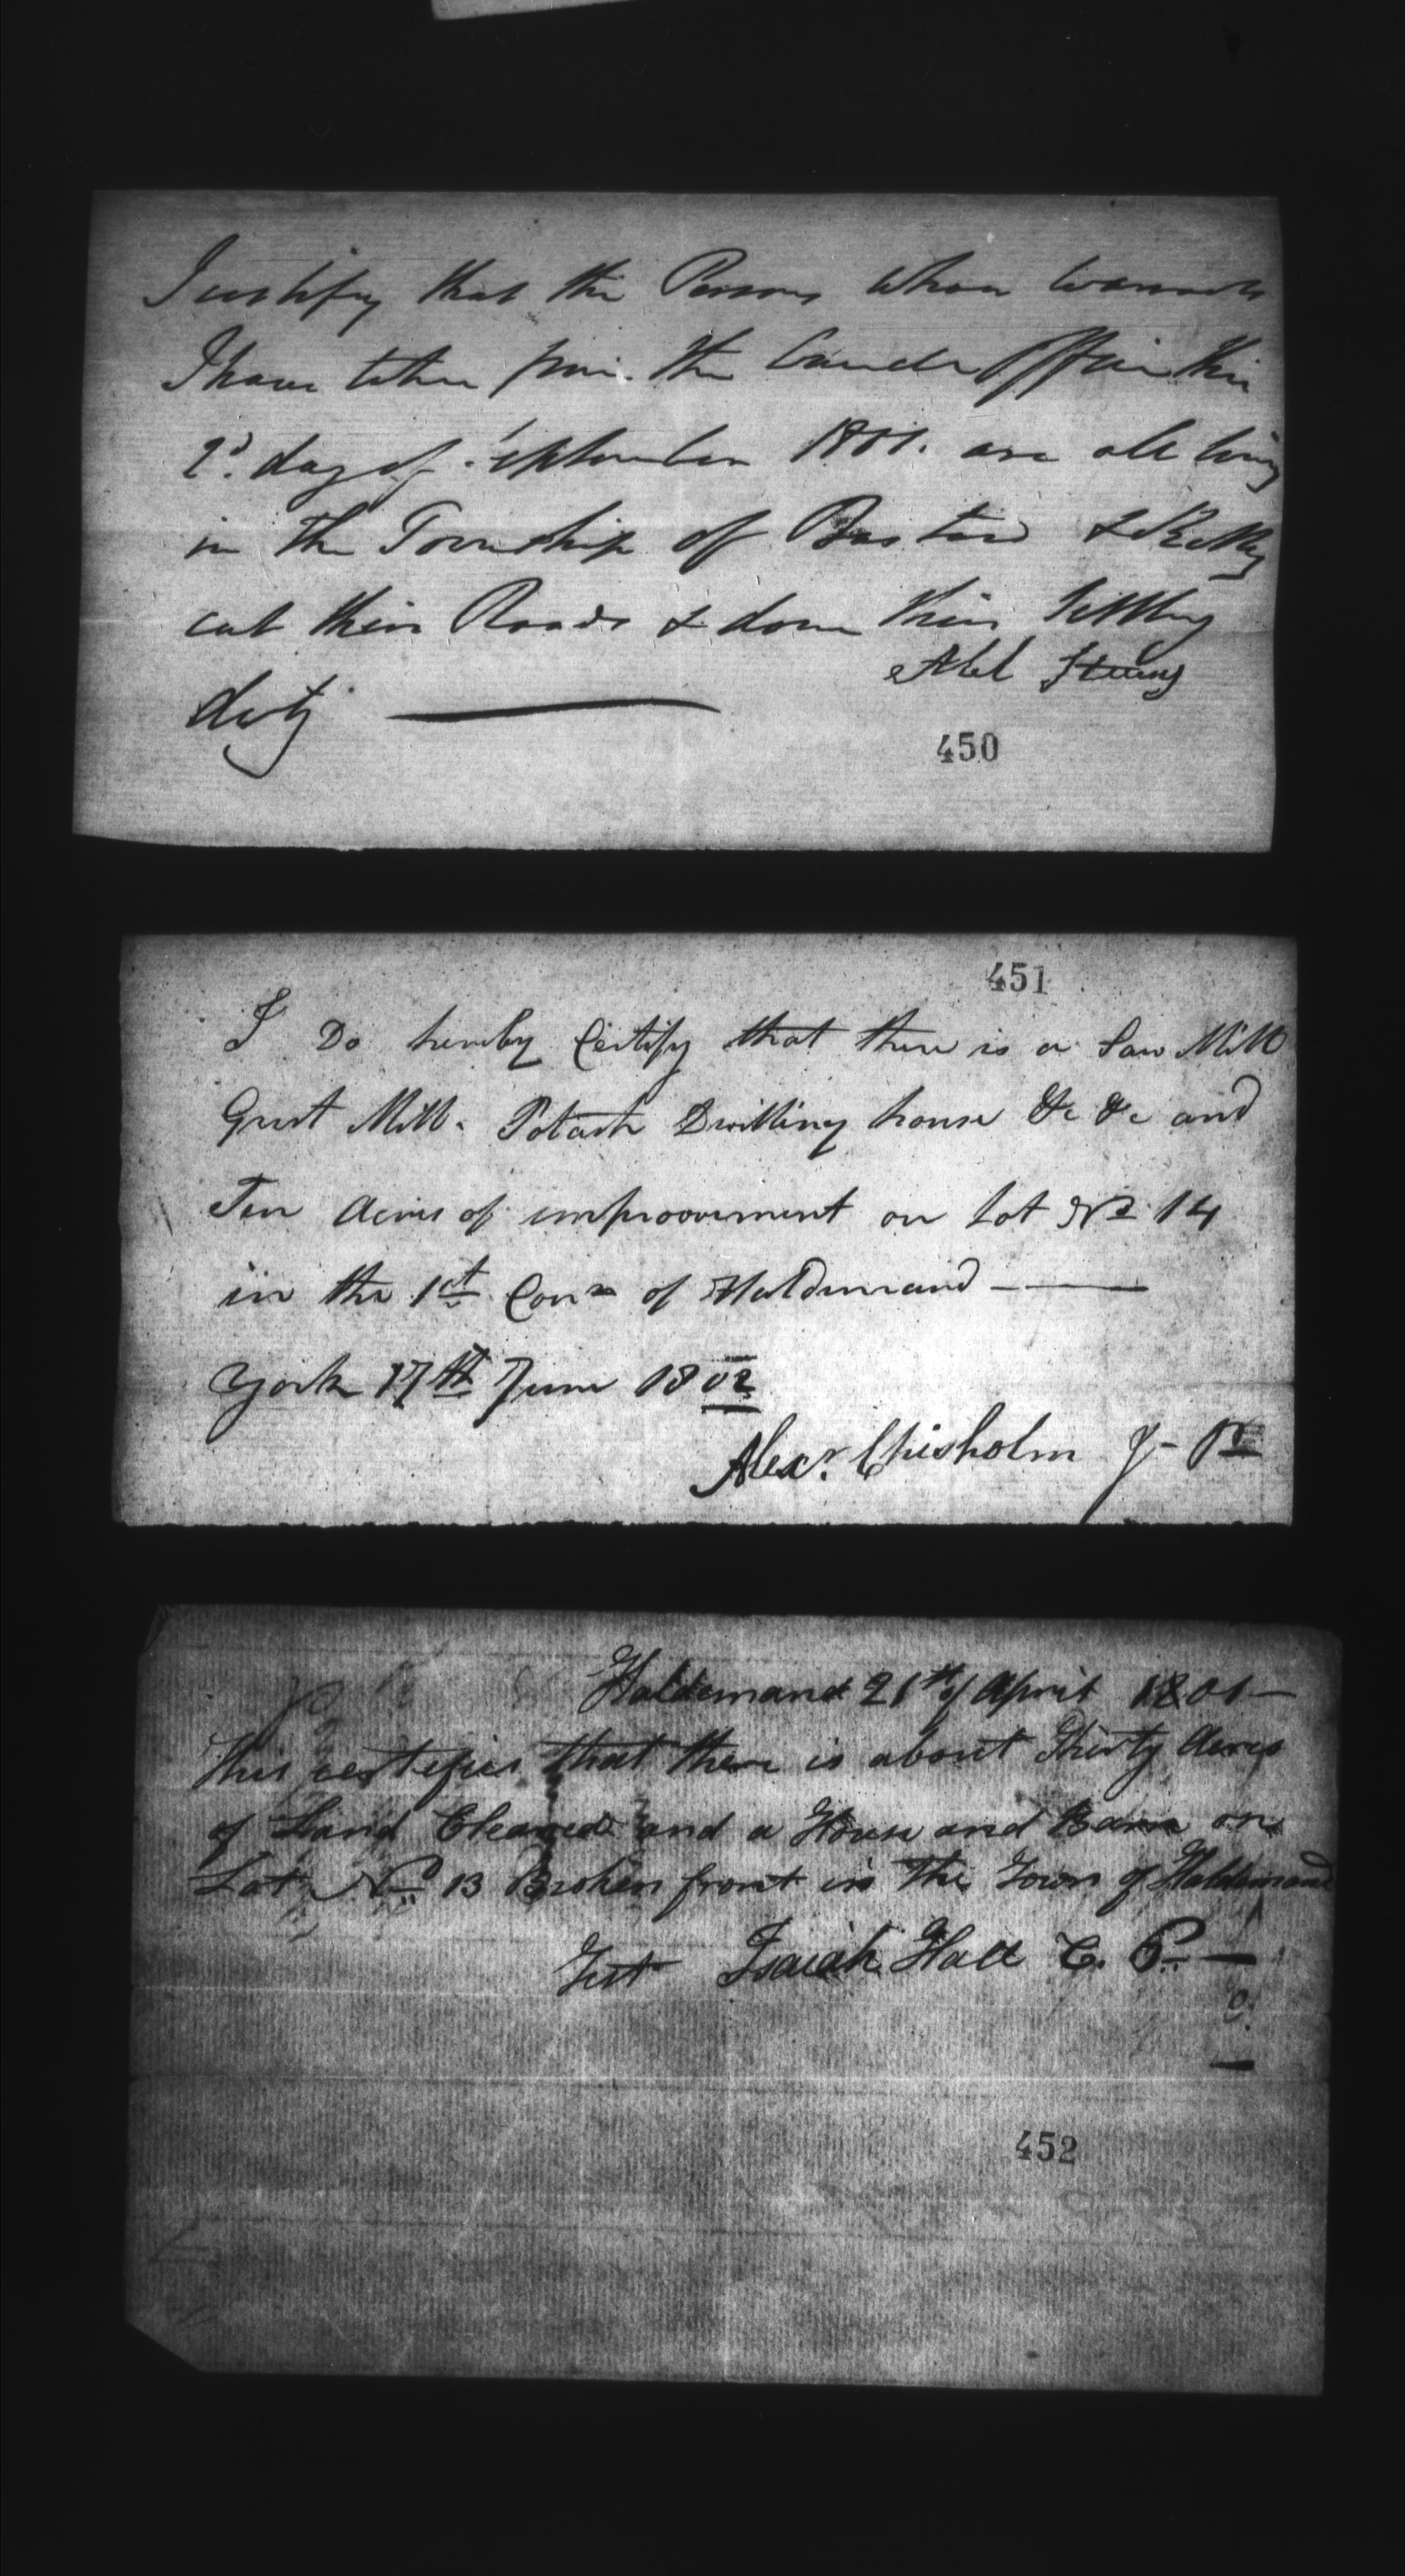 I certify that the Persons whose warrants
I have taken from the Councils Office this
2d. day of September 1801. are all living
in the Township of Bastard &
cut their Roads & done their settling
duty
Abel Stevens
450
451
I Do hereby Certify that there is a Saw Mill
Grist Mill. Potash Dwilling house &c &c and
Ten Acres of improovement on Lot No 14
in the 1st Con. of Haldimand
York 17th June 1802
Alexr. Chisholm J- P
Haldemand 21st of April 1801
This certefies that there is about Thirty Acres
of Land Cleared and a House and Barn on
Lot No 13 Broken front in The Town of Haldemand
Test Isaiah Hall C. P.
452